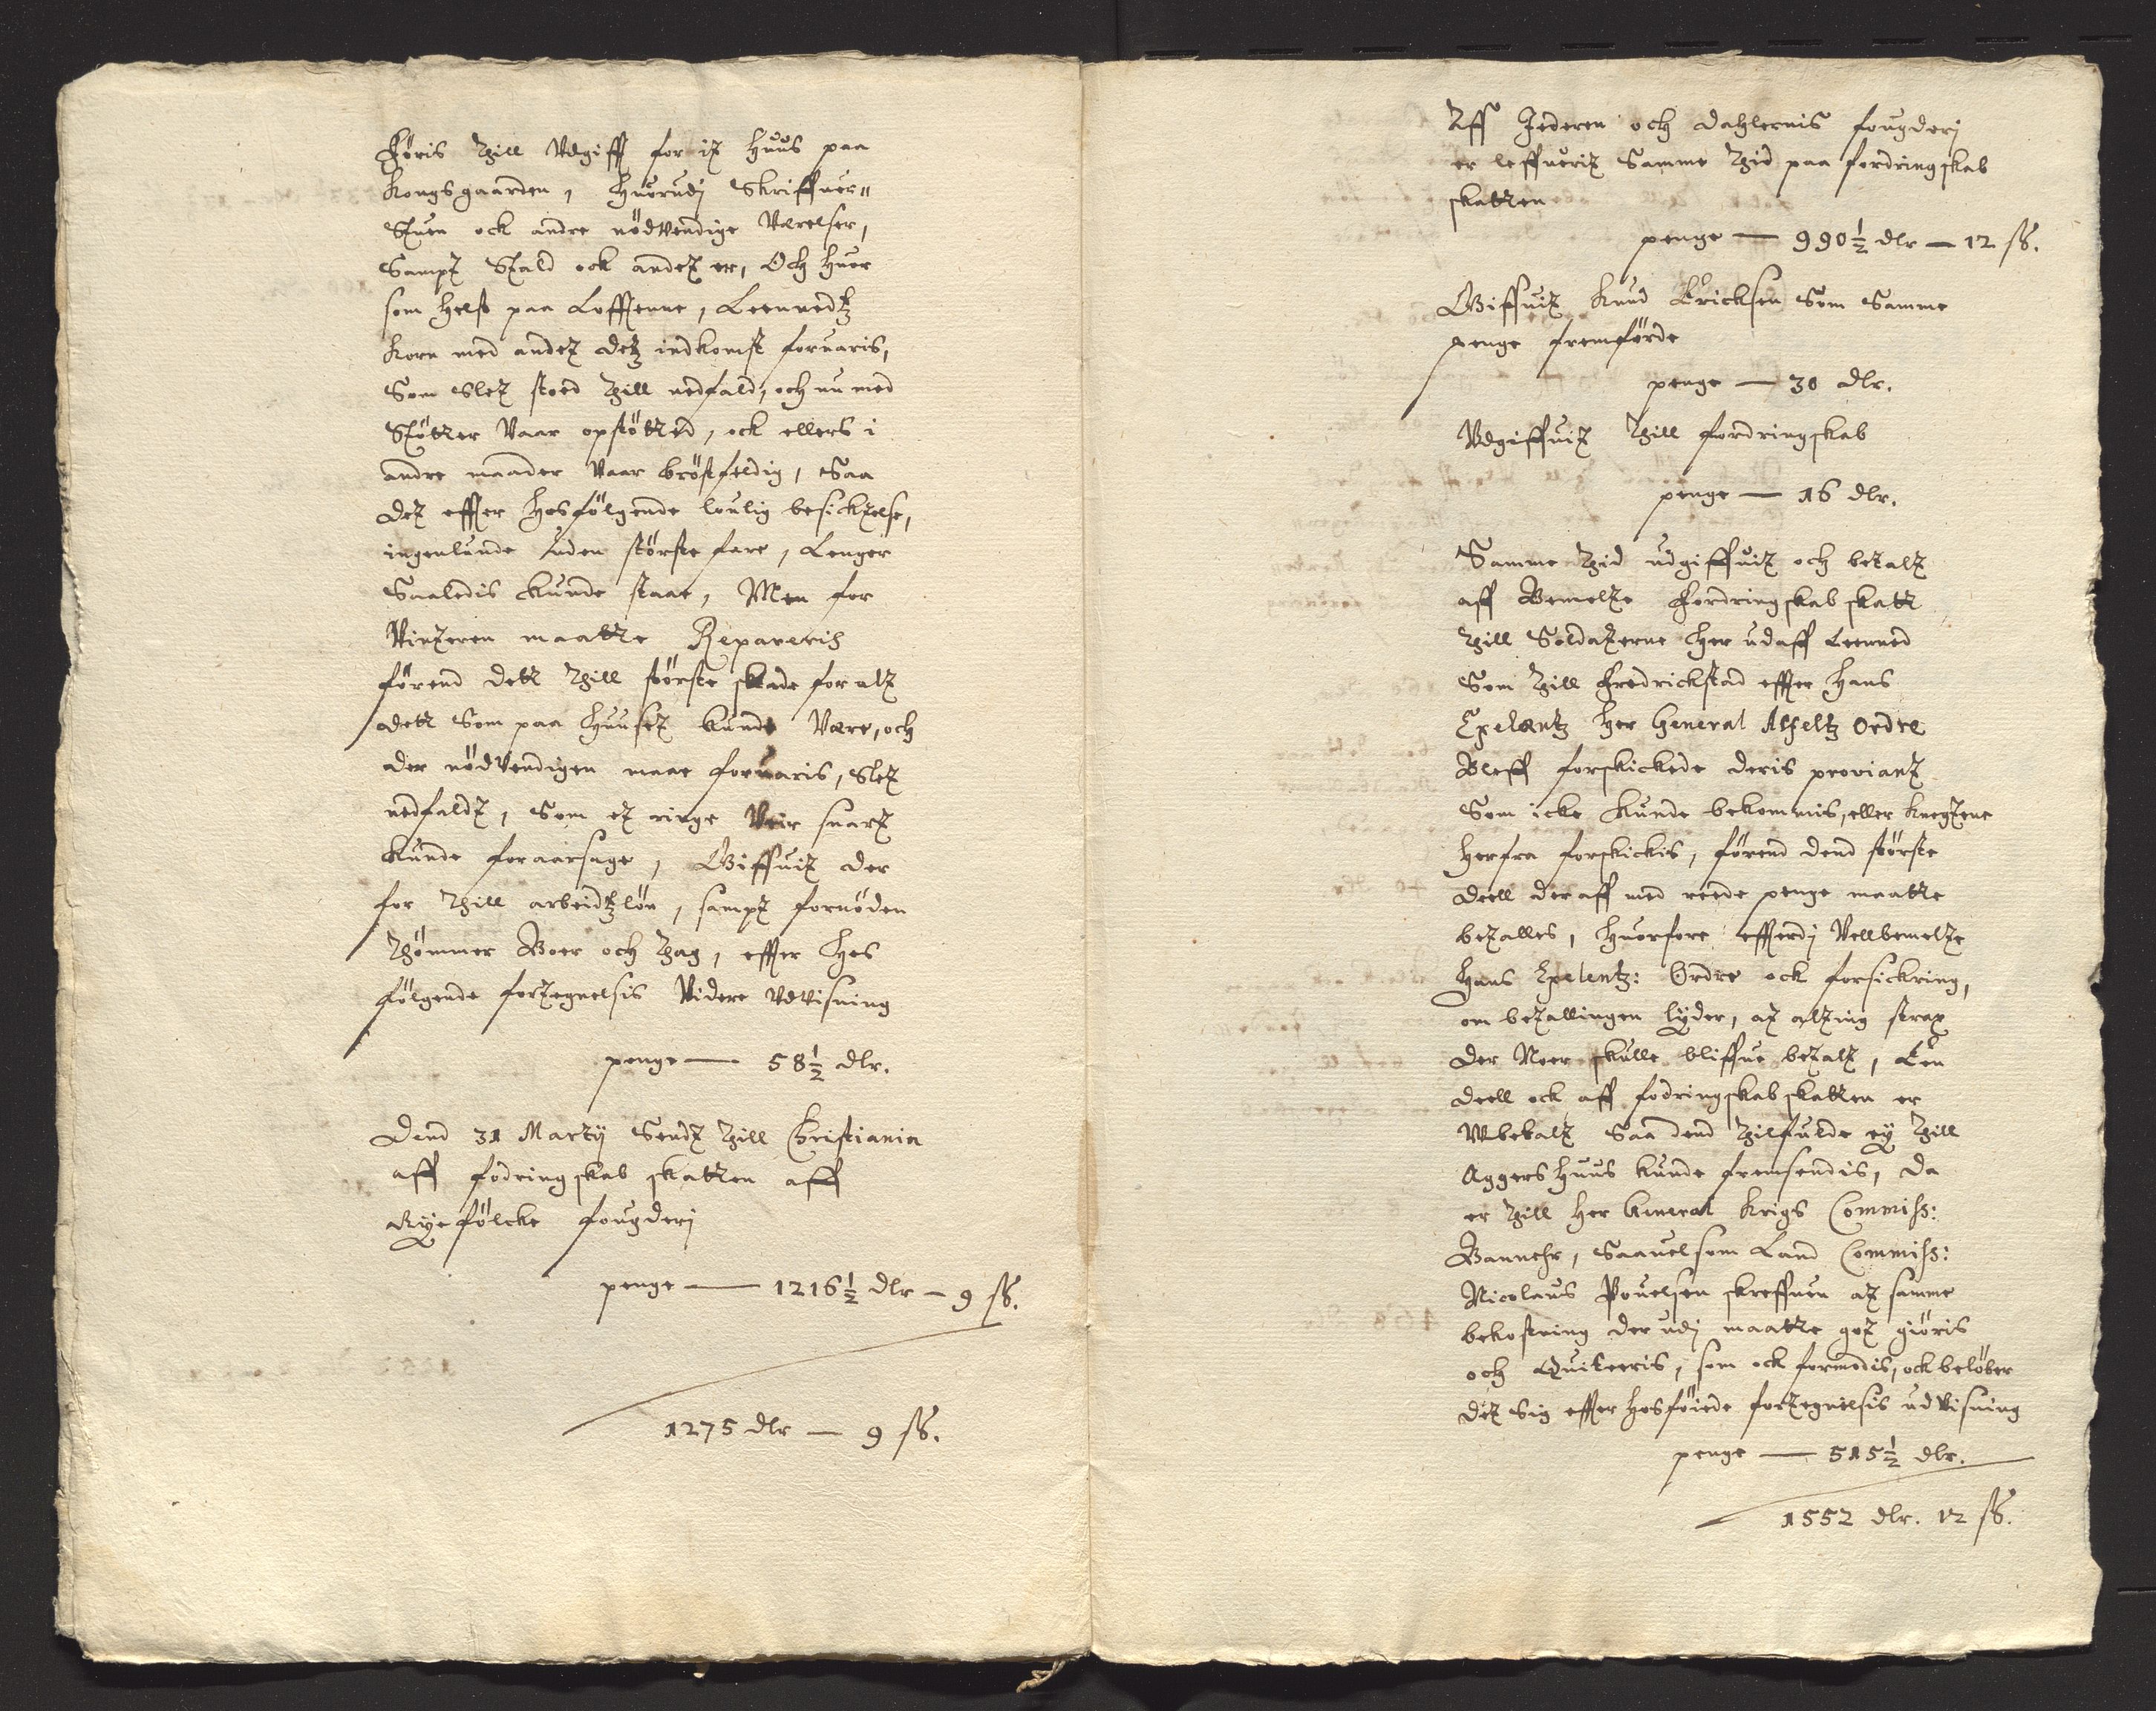 Föris thill Udgifft for it Huus paa
Kongsgaarden, Huorudj Skriffuer"
Stuen ock andre nödvendige Værelser,
Sampt Stald ock andet er, Och huor
som helst paa Lofftenne, Leennedtz
Korn med andet detz indkomst foruaris,
Som slet stoed thill nedfald, och nu med
Stötter vaar opstötted, ock ellers i
andre maader vaar bröstfeldig, Saa
det effter hosfölgende loulig besicktelse,
ingenlunde uden störste fare, Lenger
Saaledis kunde staae, Men for
Vinteren maatte Repareris
förend dett thill störste skade for alt
dett som paa Huuset kunde være, och
der nödvendigen maae foruaris, slet
nedfaldt, Som et ringe Veir snart
kunde foraarsage, Giffuit der
for thill arbeidtzlön, sampt fornöden
Thömmer Boer och Tag, effter hos
fölgende fortegnelsis Videre Udvisning
penge — 58½ dlr.
Dend 31 Martij Sendt thill Christiania
aff fodringskab skatten aff
Ryefölcke fougderj
penge — 1216½ dlr — 9 ß.
1275 dlr — 9 ß.
Aff Jederen och Dahlernis fougderj
er leffuerit Samme thid paa fordringskab
skatten
penge — 990½ dlr — 12 ß.
Giffuit Knud Ericksen Som Samme
penge fremförde
penge — 30 dlr.
Udgiffuit thill fordringskab
penge — 16 dlr.
Samme thid udgiffuit och betalt
aff Bemelte Fordringskab skatt
thill Soldaterne her udaff Leened
Som thill Fredrickstad effter Hans
Expelentz Her General Alfeltz Ordre
Bleff forskickede deris proviant
Som icke kunde bekommis, eller knegtene
herfra forskickis, förend dend störste
deell deraff med reede penge maatte
betalles, Huorfore effterdj Vellbemelte
Hans Expelentz: Ordre ock forsickring,
om betallingen lyder, at alting strax
der Neer skulle bliffue betalt, Een
deell ock aff fodringskab skatten er
Ubetalt Saa dend thilfulde ey thill
Aggershuus kunde fremsendis, da
er thill Her General Krigs Commiss:
Bannehr, Saauelsom Land Commiss:
Nicolaus Pouelsen skreffuen at samme
bekostning der udj maatte got giöris
och Quiteeris, som ock formodis, ock belöber
det Sig effter hosföiede fortegnelsis udvisning
penge — 515½ dlr.
1552 dlr. 12 ß.